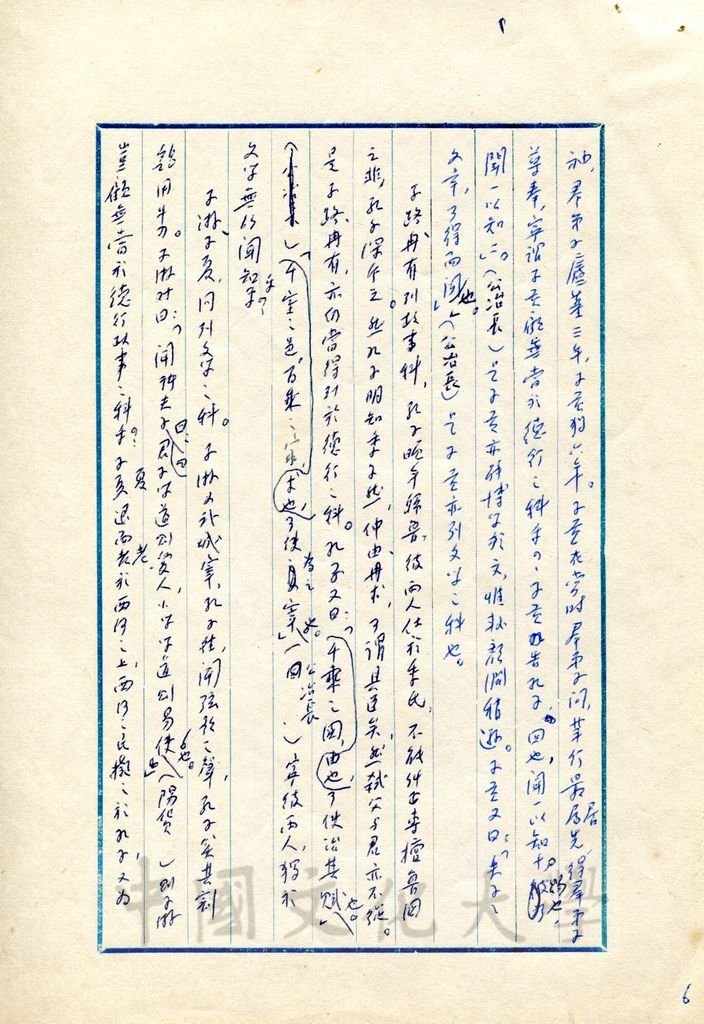 群弟子廬墓三年,子貢獨六年。子貢在當時群弟子間,葉行最居先,得群弟子
尊奉,寧謂子貢願無當於德行之科乎?子貢加告孔子,回也,聞一以知十,賜也,
聞一以知二。(公冶長)是子貢亦能博學於文,惟較顏淵稍遜。子貢又曰:「夫子之
文章,可得而聞也。」(公冶長)是子貢亦列文學之科也。
子路冉有列政事科,孔子晚年歸魯,彼兩人仕於季氏,不能件季專擅魯國
之非,孔子深斥之。然孔子明知季子然,仲由冉求,可謂具臣矣,然弒父與君亦不從。
是子路冉有,亦仍當得列於德行之科。孔子又曰:「千乘之國,由也,可使治其賦也。」
「千室之邑,百乘之家,求也,可使為之宰也。」(公冶長)寧彼兩人,獨於
文學無所聞知乎?
子游子夏,同列文學之科。子游為武城宰,孔子往,聞弦歌之聲,孔子笑其割
雞用牛刀。子游對曰:「聞諸夫子曰:君子學道則愛人,小人學道則易使也。」(陽貨)則子游
豈願無當於德行政事之科乎?子夏退而老於西河之上,西河之民擬之於孔子,又為
中國文化大學
6